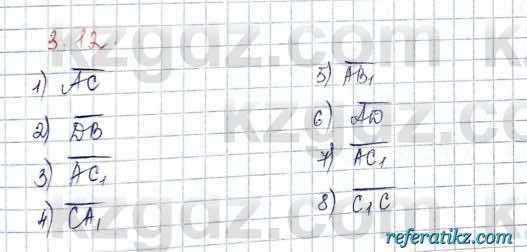 3.12.
1) A̅C̅
2) D̅B̅
3) A̅C̅₁
4) C̅A̅₁
5) A̅B̅₁
6) A̅D̅
7) A̅C̅₁
8) C̅₁̅C̅
kzgdz.com
referatikz.com